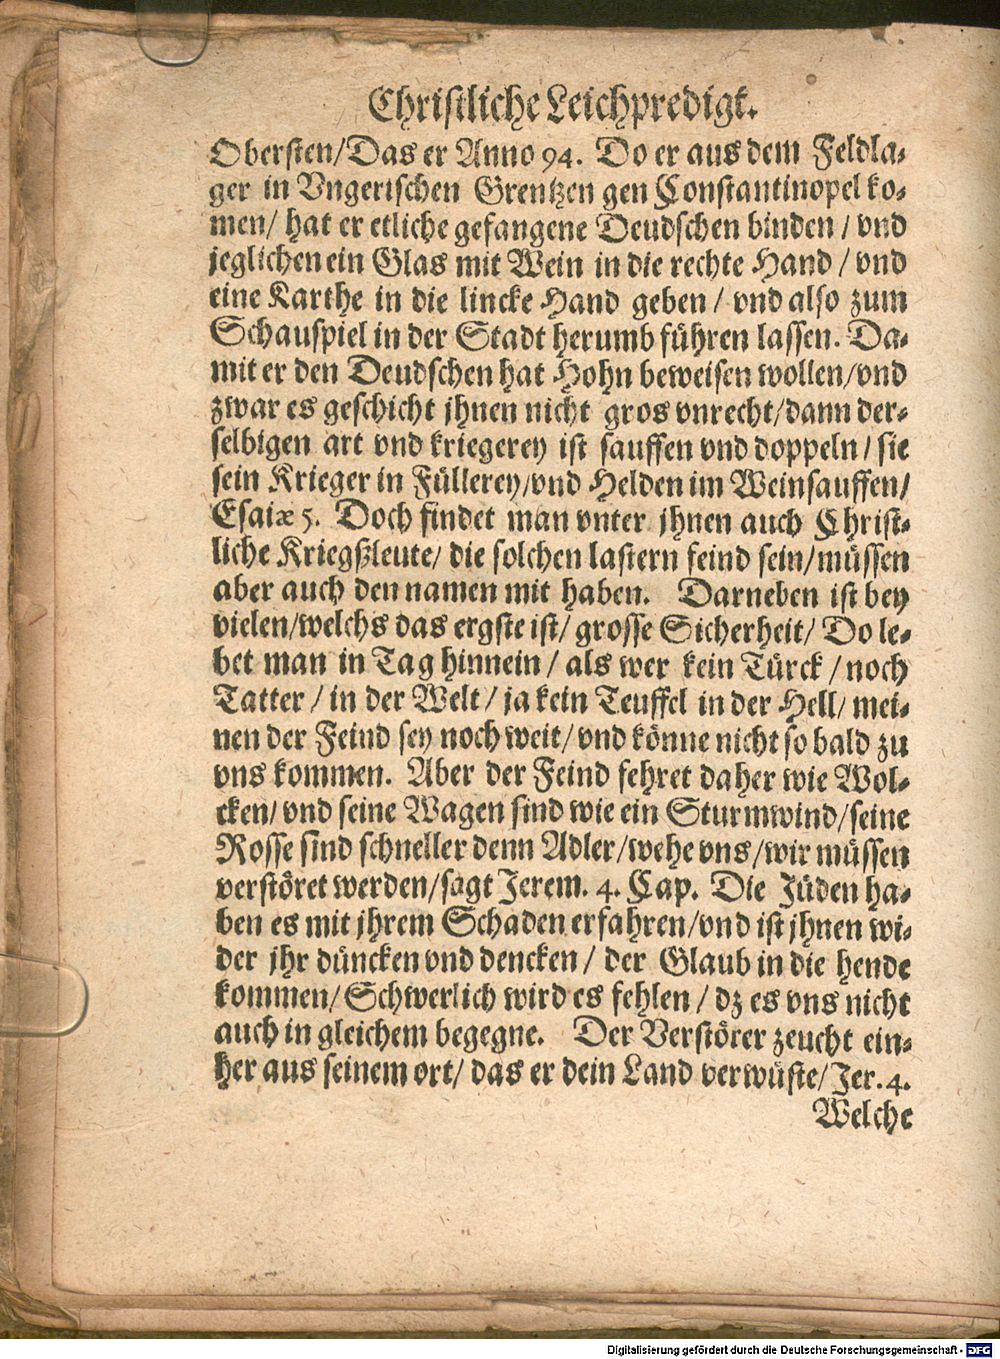 Christliche Leichpredigt.
Obersten/Das er Anno 94. Do er aus dem Feldla-
ger in Vngerischen Grentzen gen Constantinopel ko-
men/ hat er etliche gefangene Deudschen binden / vnd
jeglichen ein Glas mit Wein in die rechte Hand / vnd
eine Karthe in die lincke Hand geben / vnd also zum
Schauspiel in der Stadt herumb führen lassen. Da-
mit er den Deudschen hat Hohn beweisen wollen/vnd
zwar es geschicht jhnen nicht gros vnrecht/dann der-
selbigen art vnd kriegerey ist sauffen vnd doppeln / sie
sein Krieger in Füllerey/vnd Helden im Weinsauffen/
Esaiæ 5. Doch findet man vnter jhnen auch Christ-
liche Kriegßleute/ die solchen lastern feind sein/müssen
aber auch den namen mit haben. Darneben ist bey
vielen/welchs das ergste ist/ grosse Sicherheit/ Do le-
bet man in Tag hinnein / als wer kein Türck / noch
Tatter / in der Welt / ja kein Teuffel in der Hell/ mei-
nen der Feind sey noch weit/ vnd könne nicht so bald zu
vns kommen. Aber der Feind fehret daher wie Wol-
cken/ vnd seine Wagen sind wie ein Sturmwind/seine
Rosse sind schneller denn Adler/wehe vns/wir müssen
verstöret werden/sagt Jerem. 4. Cap. Die Jüden ha-
ben es mit jhrem Schaden erfahren/vnd ist jhnen wi-
der jhr düncken vnd dencken / der Glaub in die hende
kommen/ Schwerlich wird es fehlen / dz es vns nicht
auch in gleichem begegne. Der Verstörer zeucht ein-
her aus seinem ort/ das er dein Land verwüste/Jer. 4.
Welche
Digitalisierung gefördert durch die Deutsche Forschungsgemeinschaft - DFG